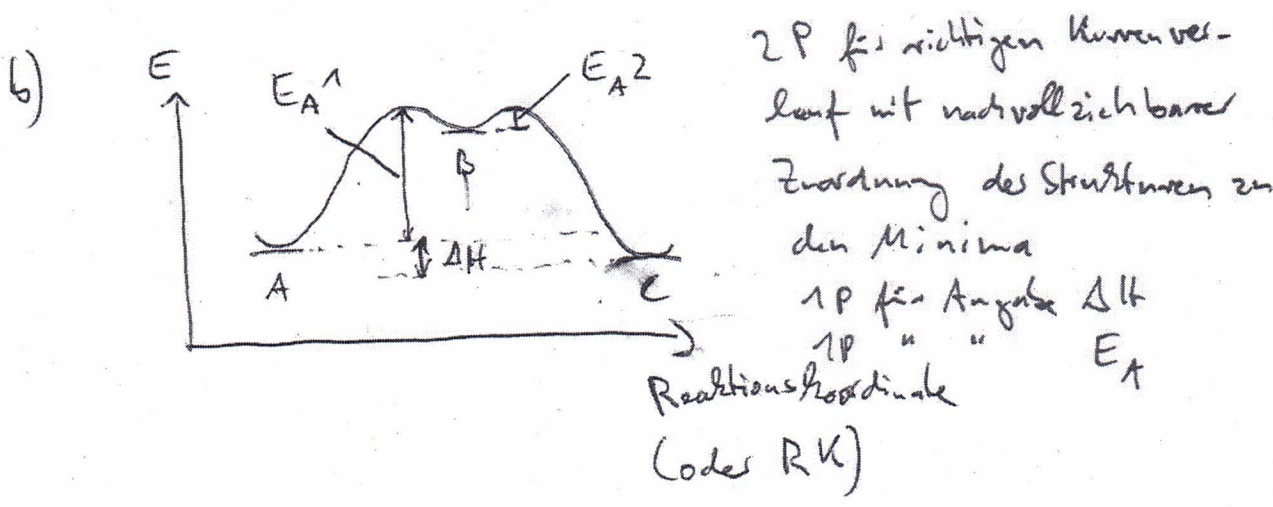 b)
E
E_A 1
E_A 2
B
ΔH
A
C
Reaktionskoordinate
(oder RK)
2 P für richtigen Kurvenver-
lauf mit nachvollziehbarer
Zuordnung der Strukturen zu
den Minima
1P für Angabe ΔH
1P " " E_A